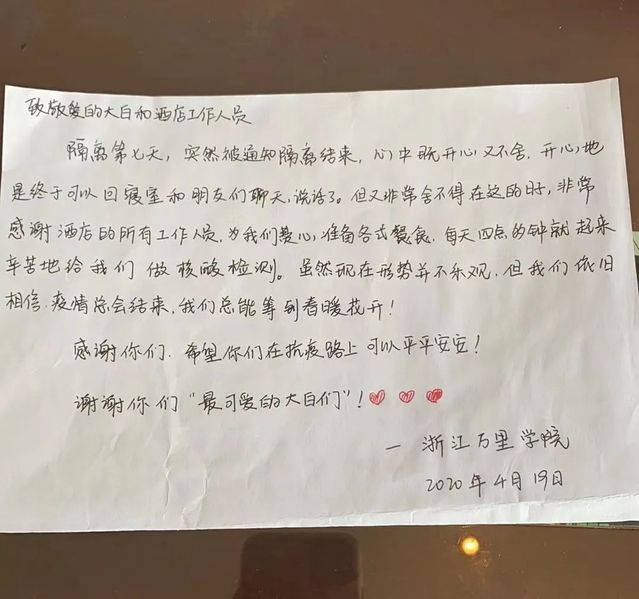 致敬爱的大白和酒店工作人员
隔离第七天，突然被通知隔离结束，心中既开心又不舍，开心地
是终于可以回寝室和朋友们聊天，说话了。但又非常舍不得在这的日子，非常
感谢酒店的所有工作人员，为我们热心，准备各式餐食，每天四点的钟就起来
辛苦地给我们做核酸检测。虽然现在形势并不乐观，但我们依旧
相信，疫情总会结束，我们总能等到春暖花开！
感谢你们，希望你们在抗疫路上可以平平安安！
谢谢你们“最可爱的大白们”！
一 浙江万里学院
2020年4月19日